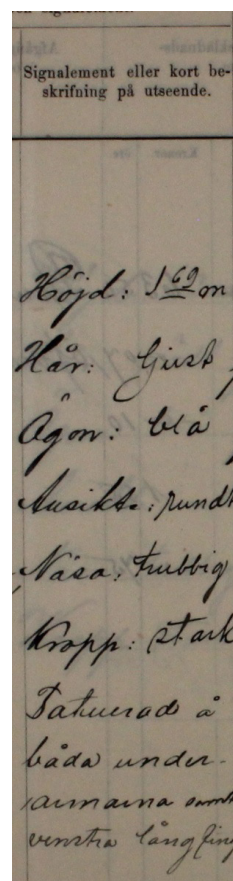 Signalement eller kort be-
skrifning på utseende.
Höjd: 1 69 m
Hår: ljust
Ögon: blå
Ansikte: rundt
Näsa: trubbig
Kropp: stark
Tatuerad å
båda under-
armarna samt
venstra långfing